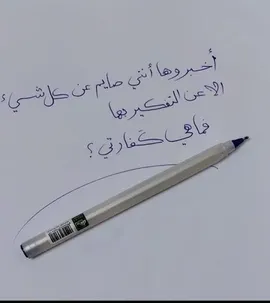 أخبروها أنني صايم عن كل شيء
الا عن التفكير بها
فما هي كفارتي ؟